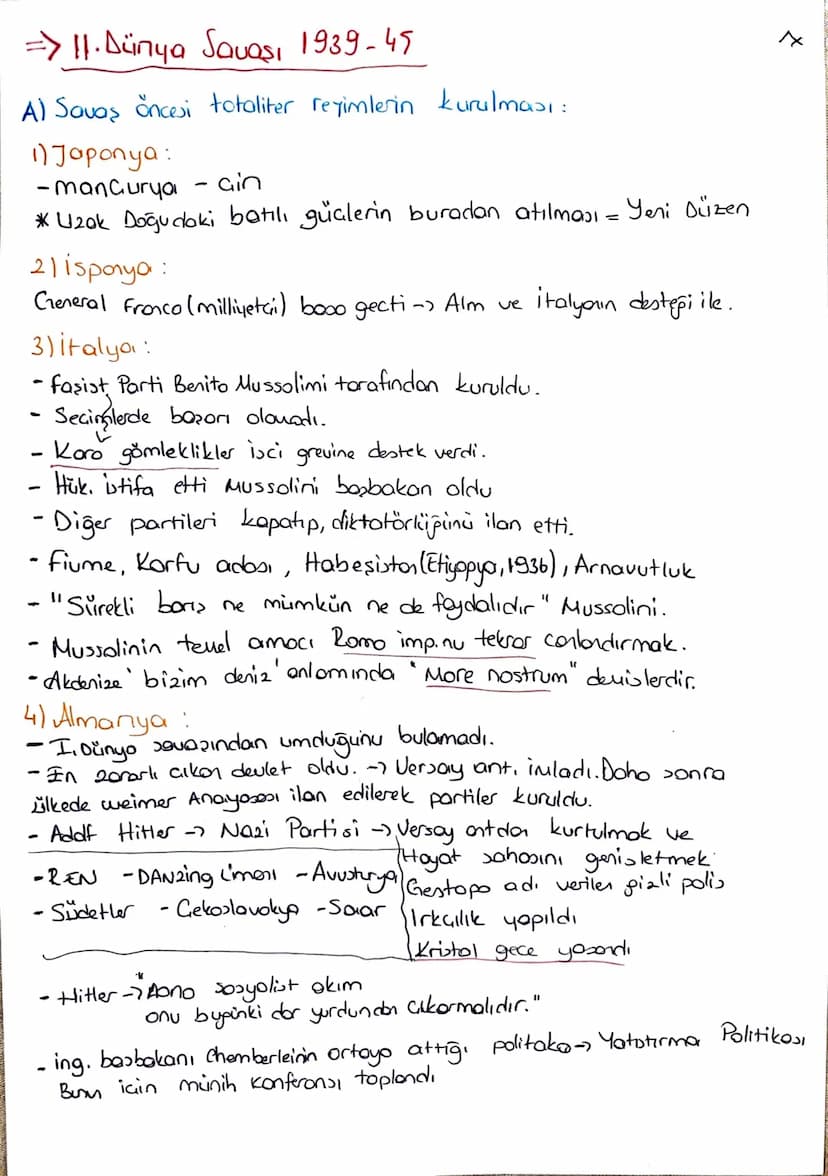 => II. Dünya Savaşı 1939-45
A) Savaş öncesi totaliter rejimlerin kurulması:
1) Japonya:
- mançurya - Çin
* Uzak Doğudaki batılı güçlerin buradan atılması = Yeni Düzen
2) İspanya:
General Franco (milliyetçi) başa geçti -> Alm ve İtalyanın desteği ile.
3) İtalya:
- Faşist Parti Benito Mussolimi tarafından kuruldu.
- Seçimlerde başarı olamadı.
- Kara gömleklikler işçi grevine destek verdi.
- Hük. istifa etti Mussolini başbakan oldu
- Diğer partileri kapatıp, diktatörlüğünü ilan etti.
- Fiume, Korfu adası, Habeşistan (Etiyopya, 1936), Arnavutluk
- "Sürekli barış ne mümkün ne de faydalıdır" Mussolini.
- Mussolinin temel amacı Roma imp.nu tekrar canlandırmak.
- Akdenize 'bizim deniz' anlamında "More nostrum" demişlerdir.
4) Almanya:
- I. Dünya savaşından umduğunu bulamadı.
- En zararlı çıkan devlet oldu. -> Versay ant. imladı. Daha sonra
ülkede weimer Anayasası ilan edilerek partiler kuruldu.
- Addf Hitler -> Nazi Partisi -> Versay antdan kurtulmak ve
Hayat sahasını genişletmek
- REN - DANzing Limanı - Avusturya
Gestapo adı verilen gizli polis
- Südetler - Çekoslavakya - Saar
Irkçılık yapıldı
Kristal gece yaşandı
- Hitler -> "Bana sosyalist akım
onu bugünki dar yurdundan çıkarmalıdır."
- ing. başbakanı Chemberleinin ortaya attığı politaka -> Yatıştırma Politikası
Bunun için münih konferansı toplandı